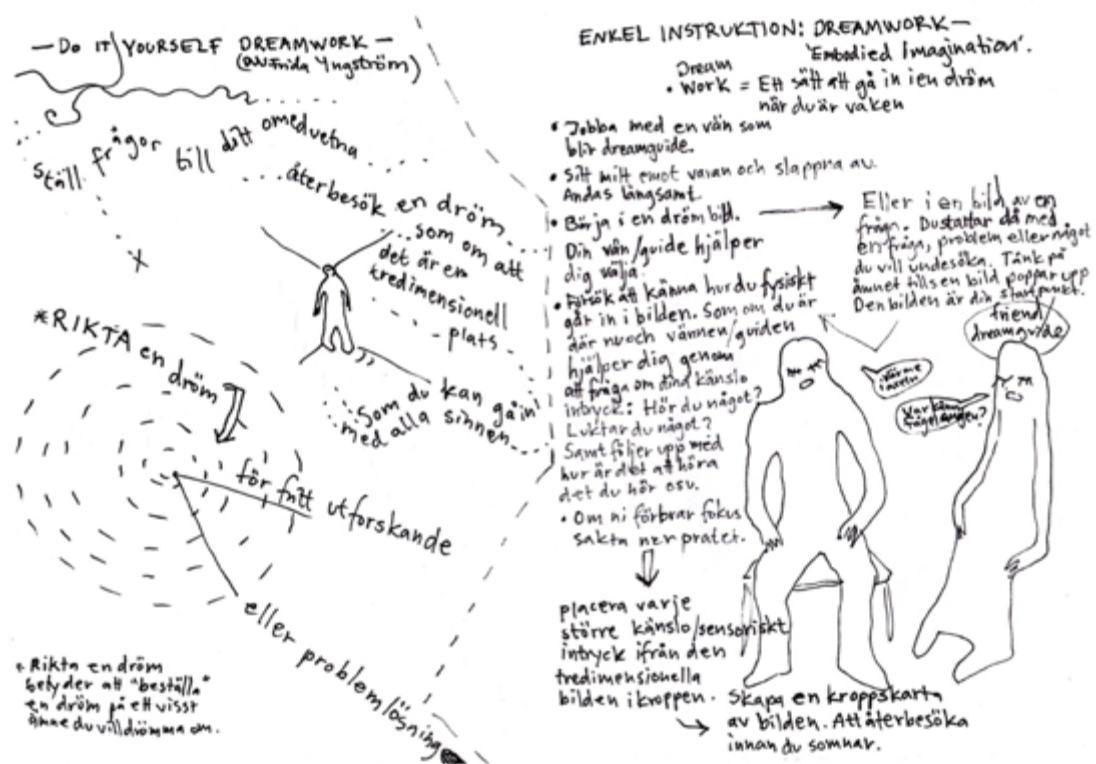 — DO IT YOURSELF DREAMWORK —
(av Frida Yngström)
ställ frågor till ditt omedvetna
återbesök en dröm
som om att
det är en
tredimensionell
plats
som du kan gå in i
med alla sinnen
*RIKTA en dröm
för fritt utforskande
eller problemlösning
* Rikta en dröm
betyder att "beställa"
en dröm på ett visst
ämne du vill drömma om.
ENKEL INSTRUKTION: DREAMWORK —
'Embodied Imagination'.
• Dream
Work = Ett sätt att gå in i en dröm
när du är vaken
• Jobba med en vän som
blir dreamguide.
• Sitt mitt emot varan och slappna av.
Andas långsamt.
• Börja i en dröm bild.
Din vän/guide hjälper
dig välja.
• Försök att känna hur du fysiskt
går in i bilden. Som om du är
där nu och vännen/guiden
hjälper dig genom
att fråga om dina känslo
intryck: Hör du något?
Luktar du något?
Samt följer upp med
hur är det att höra
det du hör osv.
• Om ni förbrar fokus
sakta ner pratet.
placera varje
större känslo/sensoriskt
intryck ifrån den
tredimensionella
bilden i kroppen.
Skapa en kroppskarta
av bilden. Att återbesöka
innan du somnar.
Eller i en bild av en
fråga. Du startar då med
en fråga, problem eller något
du vill undesöka. Tänk på
ämnet tills en bild poppar upp
Den bilden är din startpunkt.
friend
dreamguide
värme
Var känns
fågelsången?